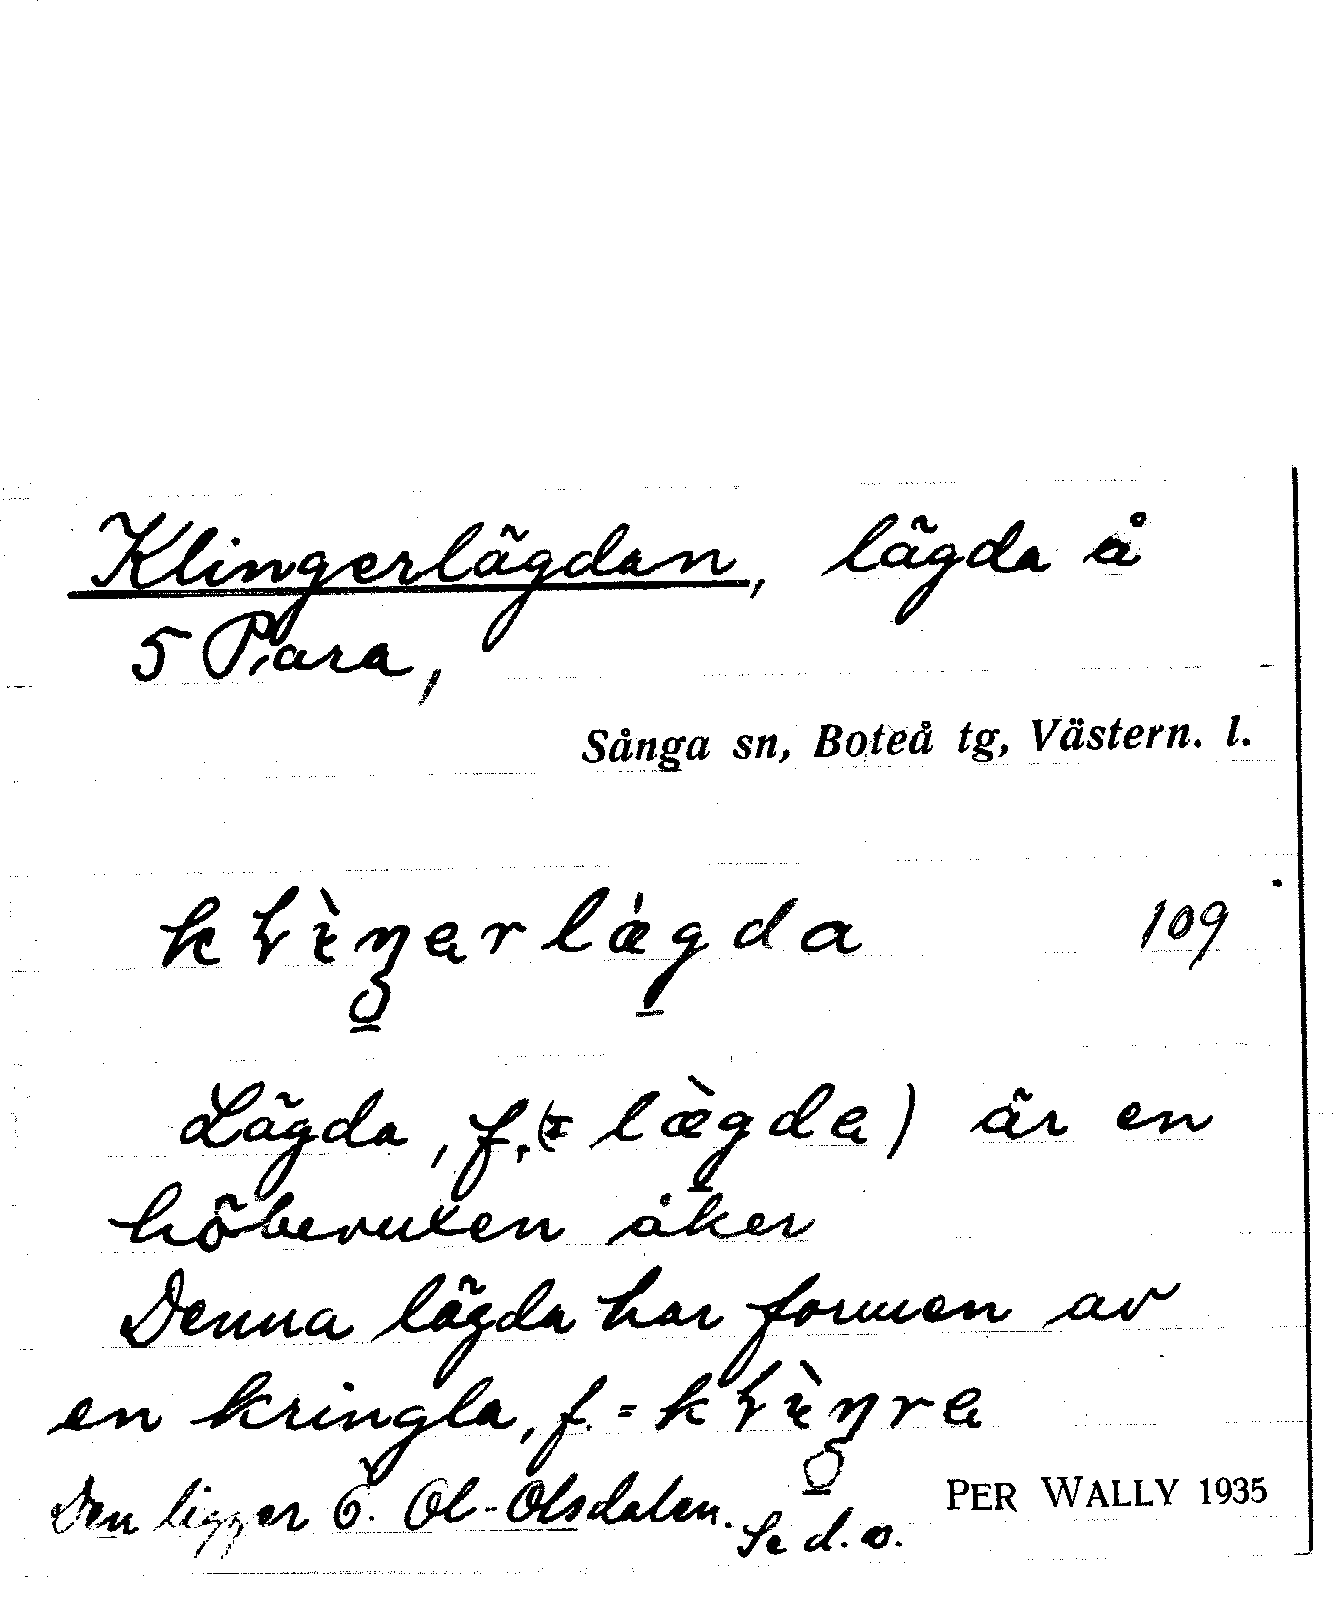 Klingerlägdan, lägda å
5 Para,
Sånga sn, Boteå tg, Västern. l.
109
Lägda, f. (= lὰgda) är en
höbevuxen åker
Denna lägda har formen av
en kringla, f. =
Den ligger Ö. Ol-Olsdalen. Se d.o.
PER WALLY 1935